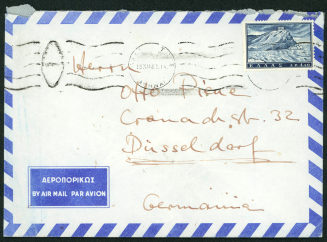 ΕΛΛΑΣ
Herrn
Otto Piene
Cranachstr. 32
Düsseldorf
Germania
ΑΕΡΟΠΟΡΙΚΩΣ
BY AIR MAIL PAR AVION